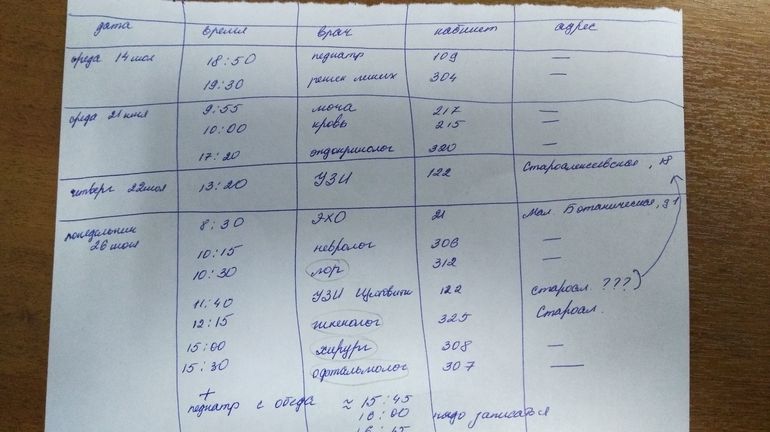 дата время врач кабинет адрес
среда 14 июл 18:50 педиатр 109 —
19:30 304 —
среда 21 июл 9:55 моча 217 —
10:00 кровь 215 —
17:20 эндокринолог 320 —
четверг 22 июл 13:20 УЗИ 122 Староалексеевская, 18
понедельник 26 июл 8:30 ЭХО 21 Мал. Ботаническая, 21
10:15 невролог 306 —
10:30 лор 312 —
11:40 УЗИ 122 староал. ???
12:15 гинеколог 325 Староал.
15:00 хирург 308 —
15:30 офтальмолог 307 —
+
педиатр с обеда ≈ 15:45
16:00 надо записаться